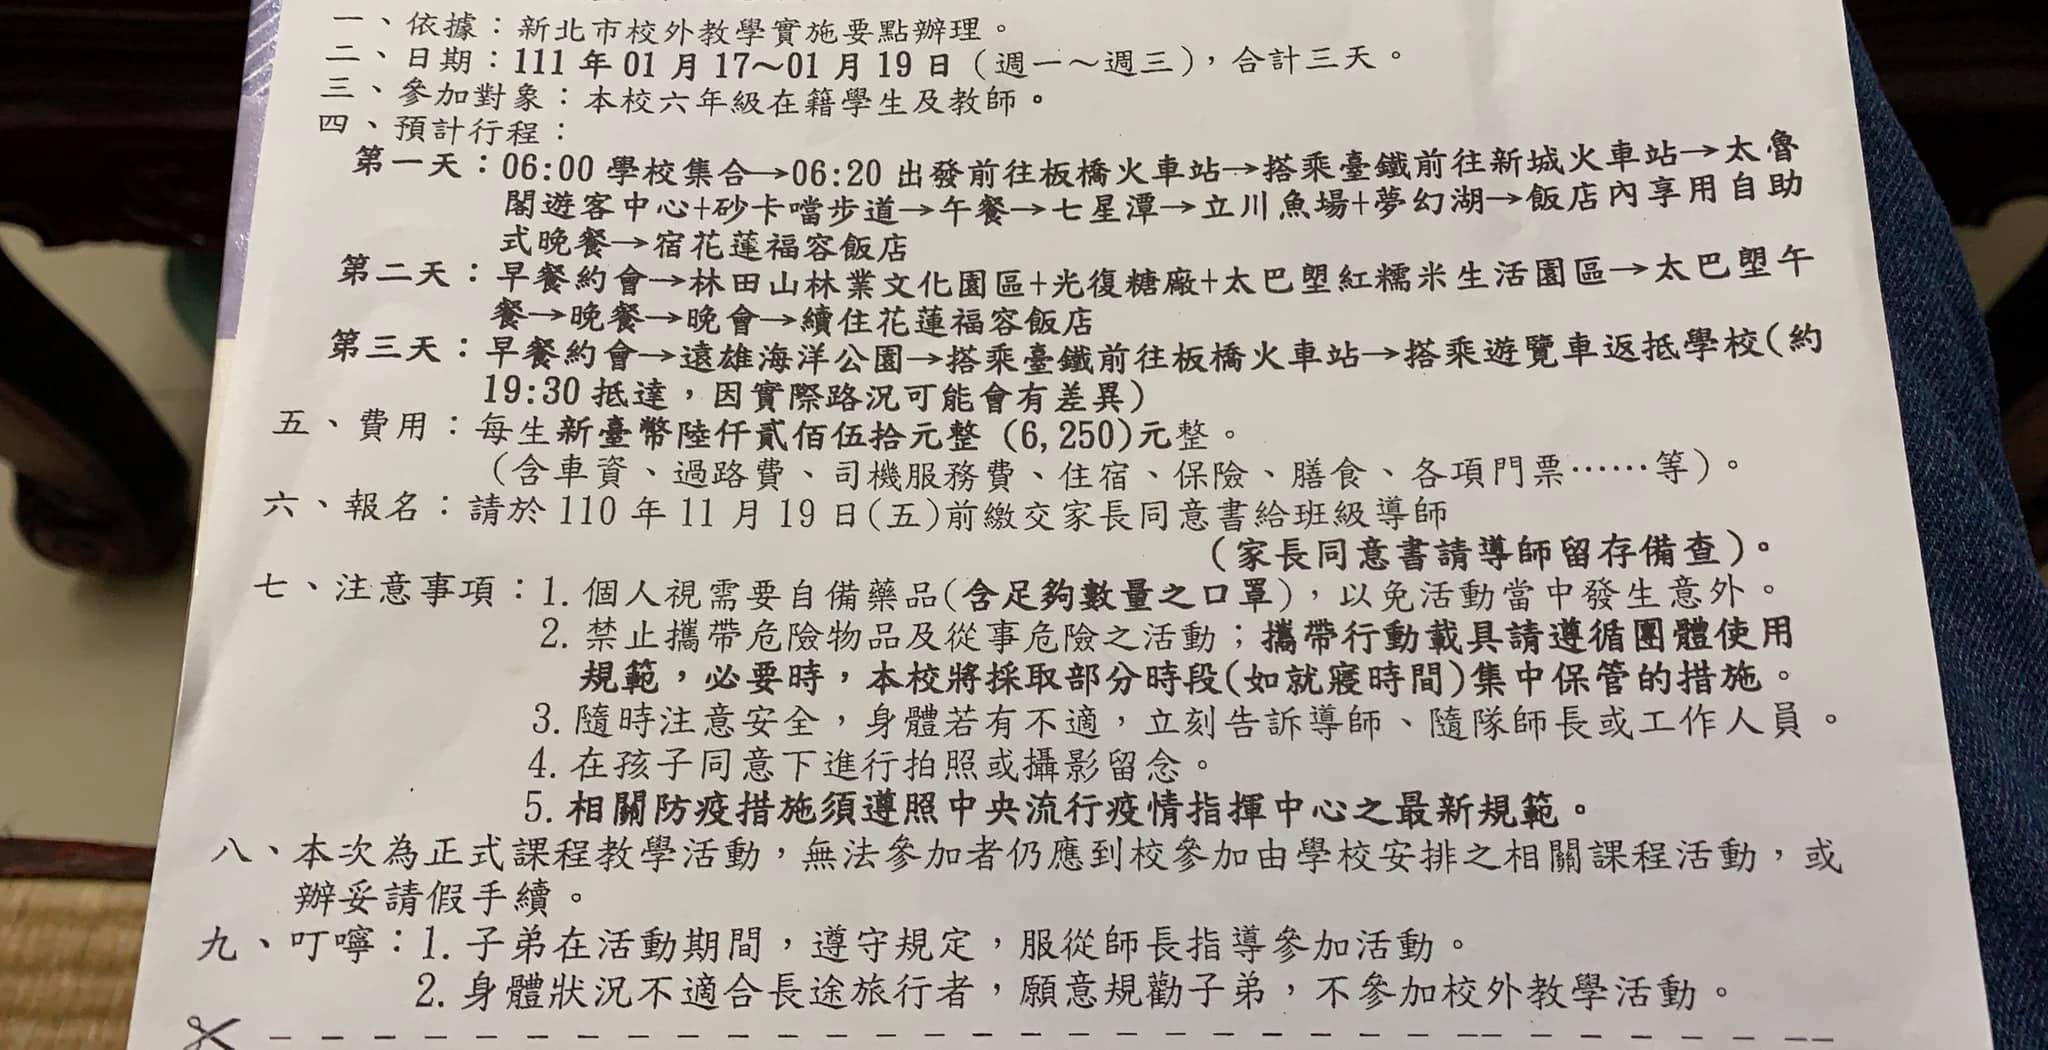 一、依據：新北市校外教學實施要點辦理。
二、日期：111 年 01 月 17～01 月 19 日（週一～週三），合計三天。
三、參加對象：本校六年級在籍學生及教師。
四、預計行程：
第一天：06:00 學校集合→06:20 出發前往板橋火車站→搭乘臺鐵前往新城火車站→太魯
閣遊客中心+砂卡噹步道→午餐→七星潭→立川魚場+夢幻湖→飯店內享用自助
式晚餐→宿花蓮福容飯店
第二天：早餐約會→林田山林業文化園區+光復糖廠+太巴塱紅糯米生活園區→太巴塱午
餐→晚餐→晚會→續住花蓮福容飯店
第三天：早餐約會→遠雄海洋公園→搭乘臺鐵前往板橋火車站→搭乘遊覽車返抵學校(約
19:30 抵達，因實際路況可能會有差異)
五、費用：每生新臺幣陸仟貳佰伍拾元整 (6,250)元整。
（含車資、過路費、司機服務費、住宿、保險、膳食、各項門票……等）。
六、報名：請於 110 年 11 月 19 日(五)前繳交家長同意書給班級導師
（家長同意書請導師留存備查）。
七、注意事項：1. 個人視需要自備藥品(含足夠數量之口罩)，以免活動當中發生意外。
2. 禁止攜帶危險物品及從事危險之活動；攜帶行動載具請遵循團體使用
規範，必要時，本校將採取部分時段(如就寢時間)集中保管的措施。
3. 隨時注意安全，身體若有不適，立刻告訴導師、隨隊師長或工作人員。
4. 在孩子同意下進行拍照或攝影留念。
5. 相關防疫措施須遵照中央流行疫情指揮中心之最新規範。
八、本次為正式課程教學活動，無法參加者仍應到校參加由學校安排之相關課程活動，或
辦妥請假手續。
九、叮嚀：1. 子弟在活動期間，遵守規定，服從師長指導參加活動。
2. 身體狀況不適合長途旅行者，願意規勸子弟，不參加校外教學活動。